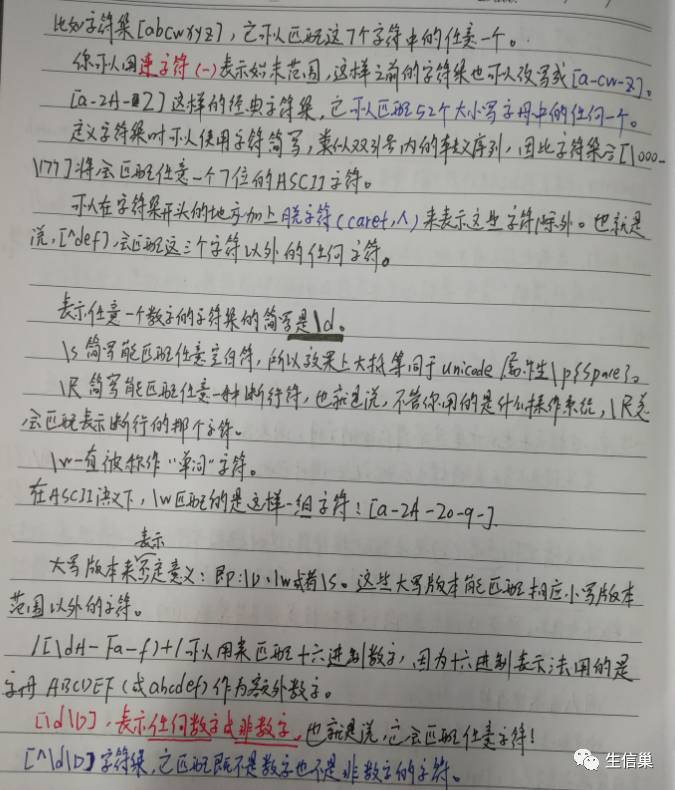 比如字符集[abcwxyz],它可以匹配这7个字符中的任意一个。
你可以用连字符(-)表示始末范围,这样之前的字符集也可以改写成[a-cw-z]。
[a-zA-Z]这样的经典字符集,它可以匹配52个大小写字母中的任何一个。
定义字符集时可以使用字符简写,类似双引号内的转义序列,因此字符集合[\000-
\177]将会匹配任意一个7位的ASCII字符。
可以在字符集开头的地方加上脱字符(caret,^)来表示这些字符除外。也就是
说,[^def],会匹配这三个字符以外的任何字符。
表示任意一个数字的字符集的简写是\d。
\s简写能匹配任意空白符,所以效果上大抵等同于unicode属性\p{Space}。
\R简写能匹配任意一种断行符,也就是说,不管你用的是什么操作系统,\R总
会匹配表示断行的那个字符。
\w一直被称作“单词”字符。
在ASCII语义下,\w匹配的是这样一组字符:[a-zA-Z0-9-].
大写版本来表示否定意义:即:\D、\w或者\S。这些大写版本能匹配相应小写版本
范围以外的字符。
/[\dA-Fa-f)+/可以用来匹配十六进制数字,因为十六进制表示法用的是
字母ABCDEF(或abcdef)作为额外数字。
[\d\D],表示任何数字或非数字,也就是说,它会匹配任意字符!
[^\d\D]字符集,它匹配既不是数字也不是非数字的字符。
生信巢